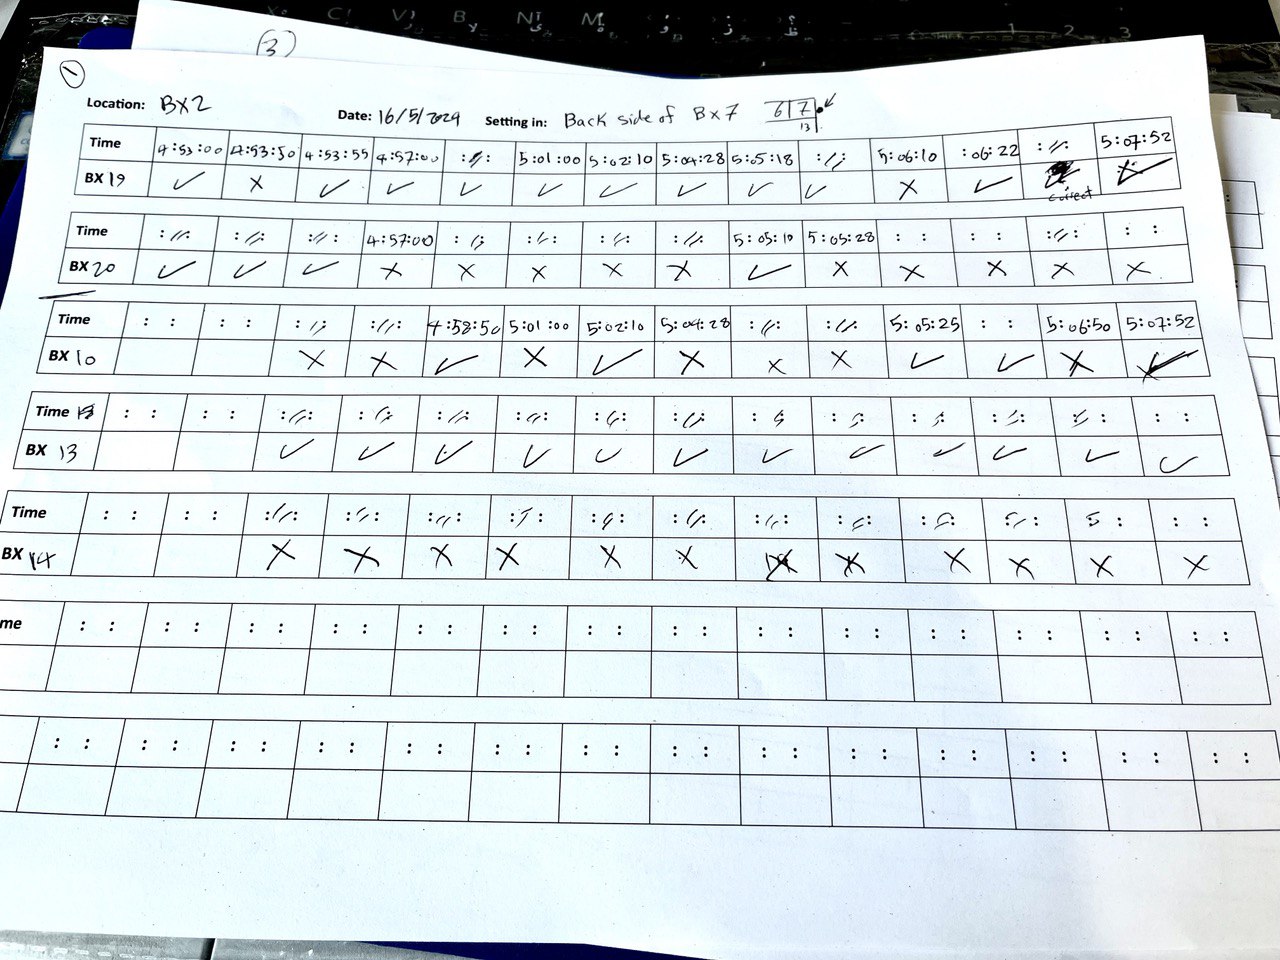 3
1
Location: BX2 Date: 16/5/2024 Setting in: Back side of BX7 6 | 7
13
Time 4:53:00 4:53:50 4:53:55 4:57:00 : // : 5:01:00 5:02:10 5:04:28 5:05:18 : // : 5:06:10 :06:22 : // : 5:07:52
BX 19 ✓ X ✓ ✓ ✓ ✓ ✓ ✓ ✓ ✓ X ✓
correct
Time : // : : // : : // : 4:57:00 : // : : // : : // : : // : 5:05:10 5:05:28 : : : : : // : : :
BX 20 ✓ ✓ ✓ X X X X X ✓ X X X X X
Time : : : : : // : : // : 4:58:50 5:01:00 5:02:10 5:04:28 : // : : // : 5:05:25 : : 5:06:50 5:07:52
BX 10 X X ✓ X ✓ X X X ✓ ✓ X
Time : : : : : // : : // : : // : : // : : // : : // : : // : : // : : // : : // : : // : : :
BX 13 ✓ ✓ ✓ ✓ ✓ ✓ ✓ ✓ ✓ ✓ ✓ ✓
Time : : : : : // : : // : : // : : // : : // : : // : : // : : // : : // : : // : : :
BX 14 X X X X X X X X X X X X
me : : : : : : : : : : : : : : : : : : : : : : : : : : : :
: : : : : : : : : : : : : : : : : : : : : : : : : : : :